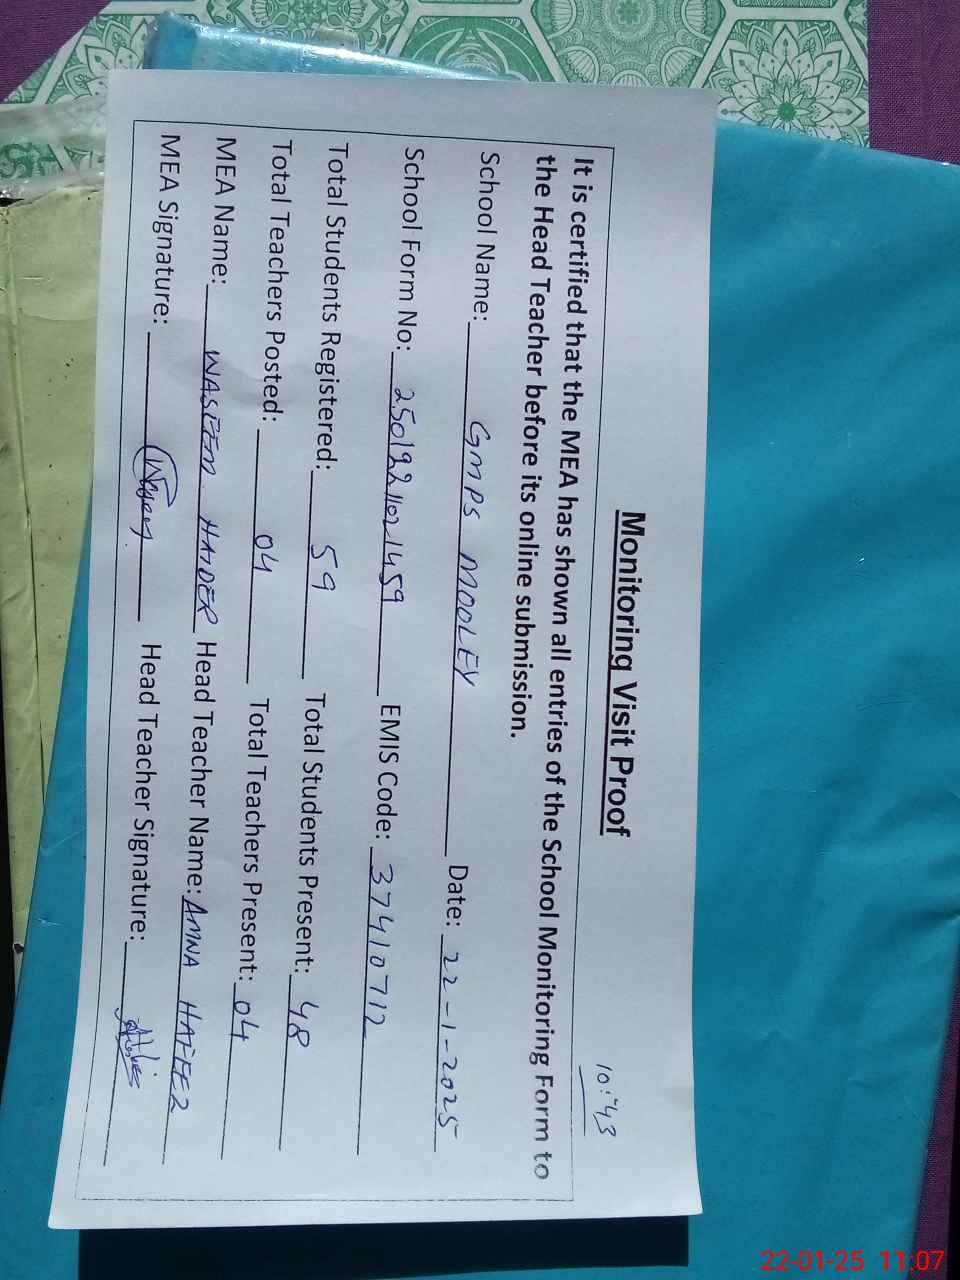 Monitoring Visit Proof
10:43
It is certified that the MEA has shown all entries of the School Monitoring Form to
the Head Teacher before its online submission.
School Name: GMPS MOOLEY Date: 22-1-2025
School Form No: 25012211021459 EMIS Code: 37410712
Total Students Registered: 59 Total Students Present: 48
Total Teachers Posted: 04 Total Teachers Present: 04
MEA Name: WASEEM HAIDER Head Teacher Name: AMNA HAFEEZ
MEA Signature: Head Teacher Signature:
22-01-25 11:07